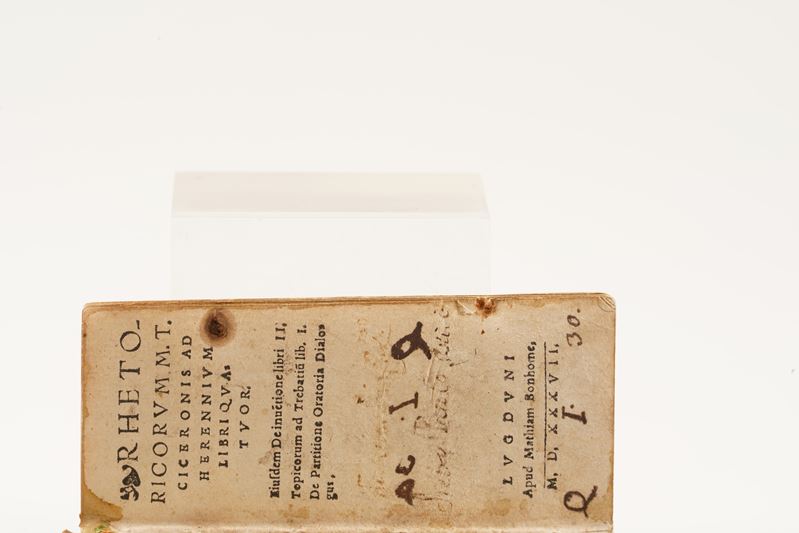 ❦RHETO-
RICORVM M. T.
CICERONIS AD
HERENNIVM
LIBRI QVA-
TVOR.
Eiuſdem De inuētione libri II,
Topicorum ad Trebatiū lib. I.
De Partitione Oratoria Dialo-
gus,
LVGDVNI
Apud Mathiam Bonhome,
M, D, XXXVII,
Q I. 30.